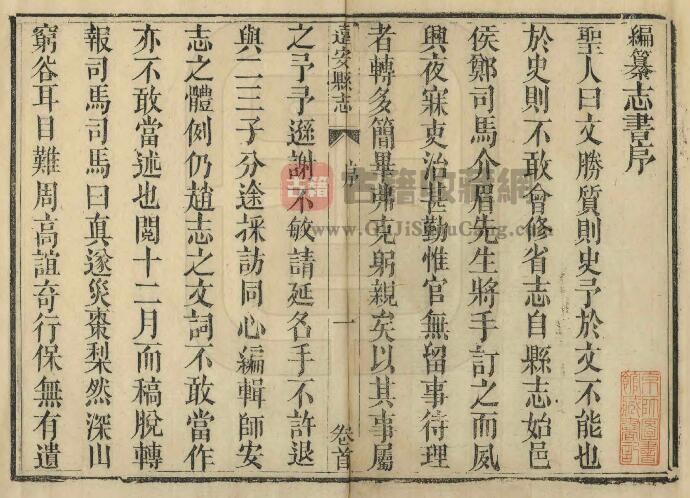 編纂志書序
聖人曰文勝質則史予於文不能也
於史則不敢會修省志自縣志始邑
侯鄭司馬介眉先生將手訂之而夙
興夜寐吏治甚勤惟官無留事待理
者轉多簡畢鼎克躬親矣以其事屬
遠安縣志
序
一
卷首
之予予遜謝不敏請延名手不許退
與二三子分途採訪同心編輯師安
志之體例仍趙志之文詞不敢當作
亦不敢當述也閱十二月而稿脫轉
報司馬司馬曰真遂災棗梨然深山
窮谷耳目難周高誼奇行保無有遺
古籍收藏網
www.GuJiShouCang.com